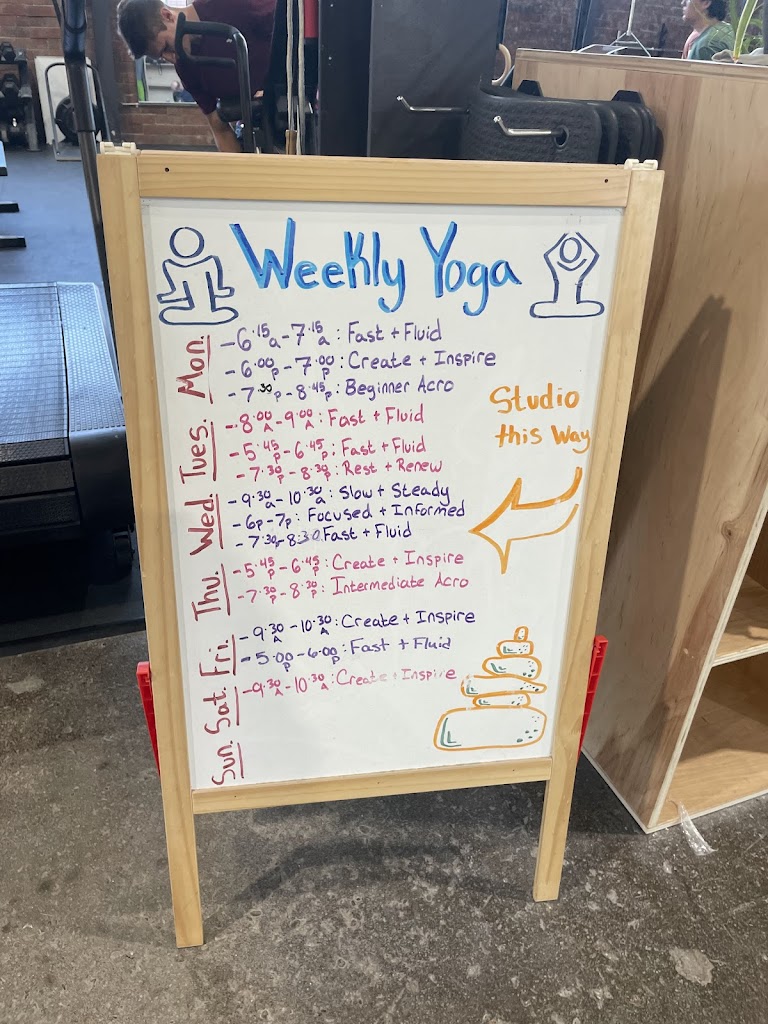 Weekly Yoga
Mon.
-6:15a-7:15a: Fast + Fluid
-6:00p-7:00p: Create + Inspire
-7:30p-8:45p: Beginner Acro
Studio
this Way
Tues.
-8:00A-9:00A: Fast + Fluid
-5:45p-6:45p: Fast + Fluid
-7:30p-8:30p: Rest + Renew
Wed.
-9:30a-10:30a: Slow + Steady
-6p-7p: Focused + Informed
-7:30p-8:30 Fast + Fluid
Thu.
-5:45p-6:45p: Create + Inspire
-7:30p-8:30p: Intermediate Acro
Fri.
-9:30A-10:30A: Create + Inspire
-5:00p-6:00p: Fast + Fluid
Sat.
-9:30A-10:30A: Create + Inspire
Sun.